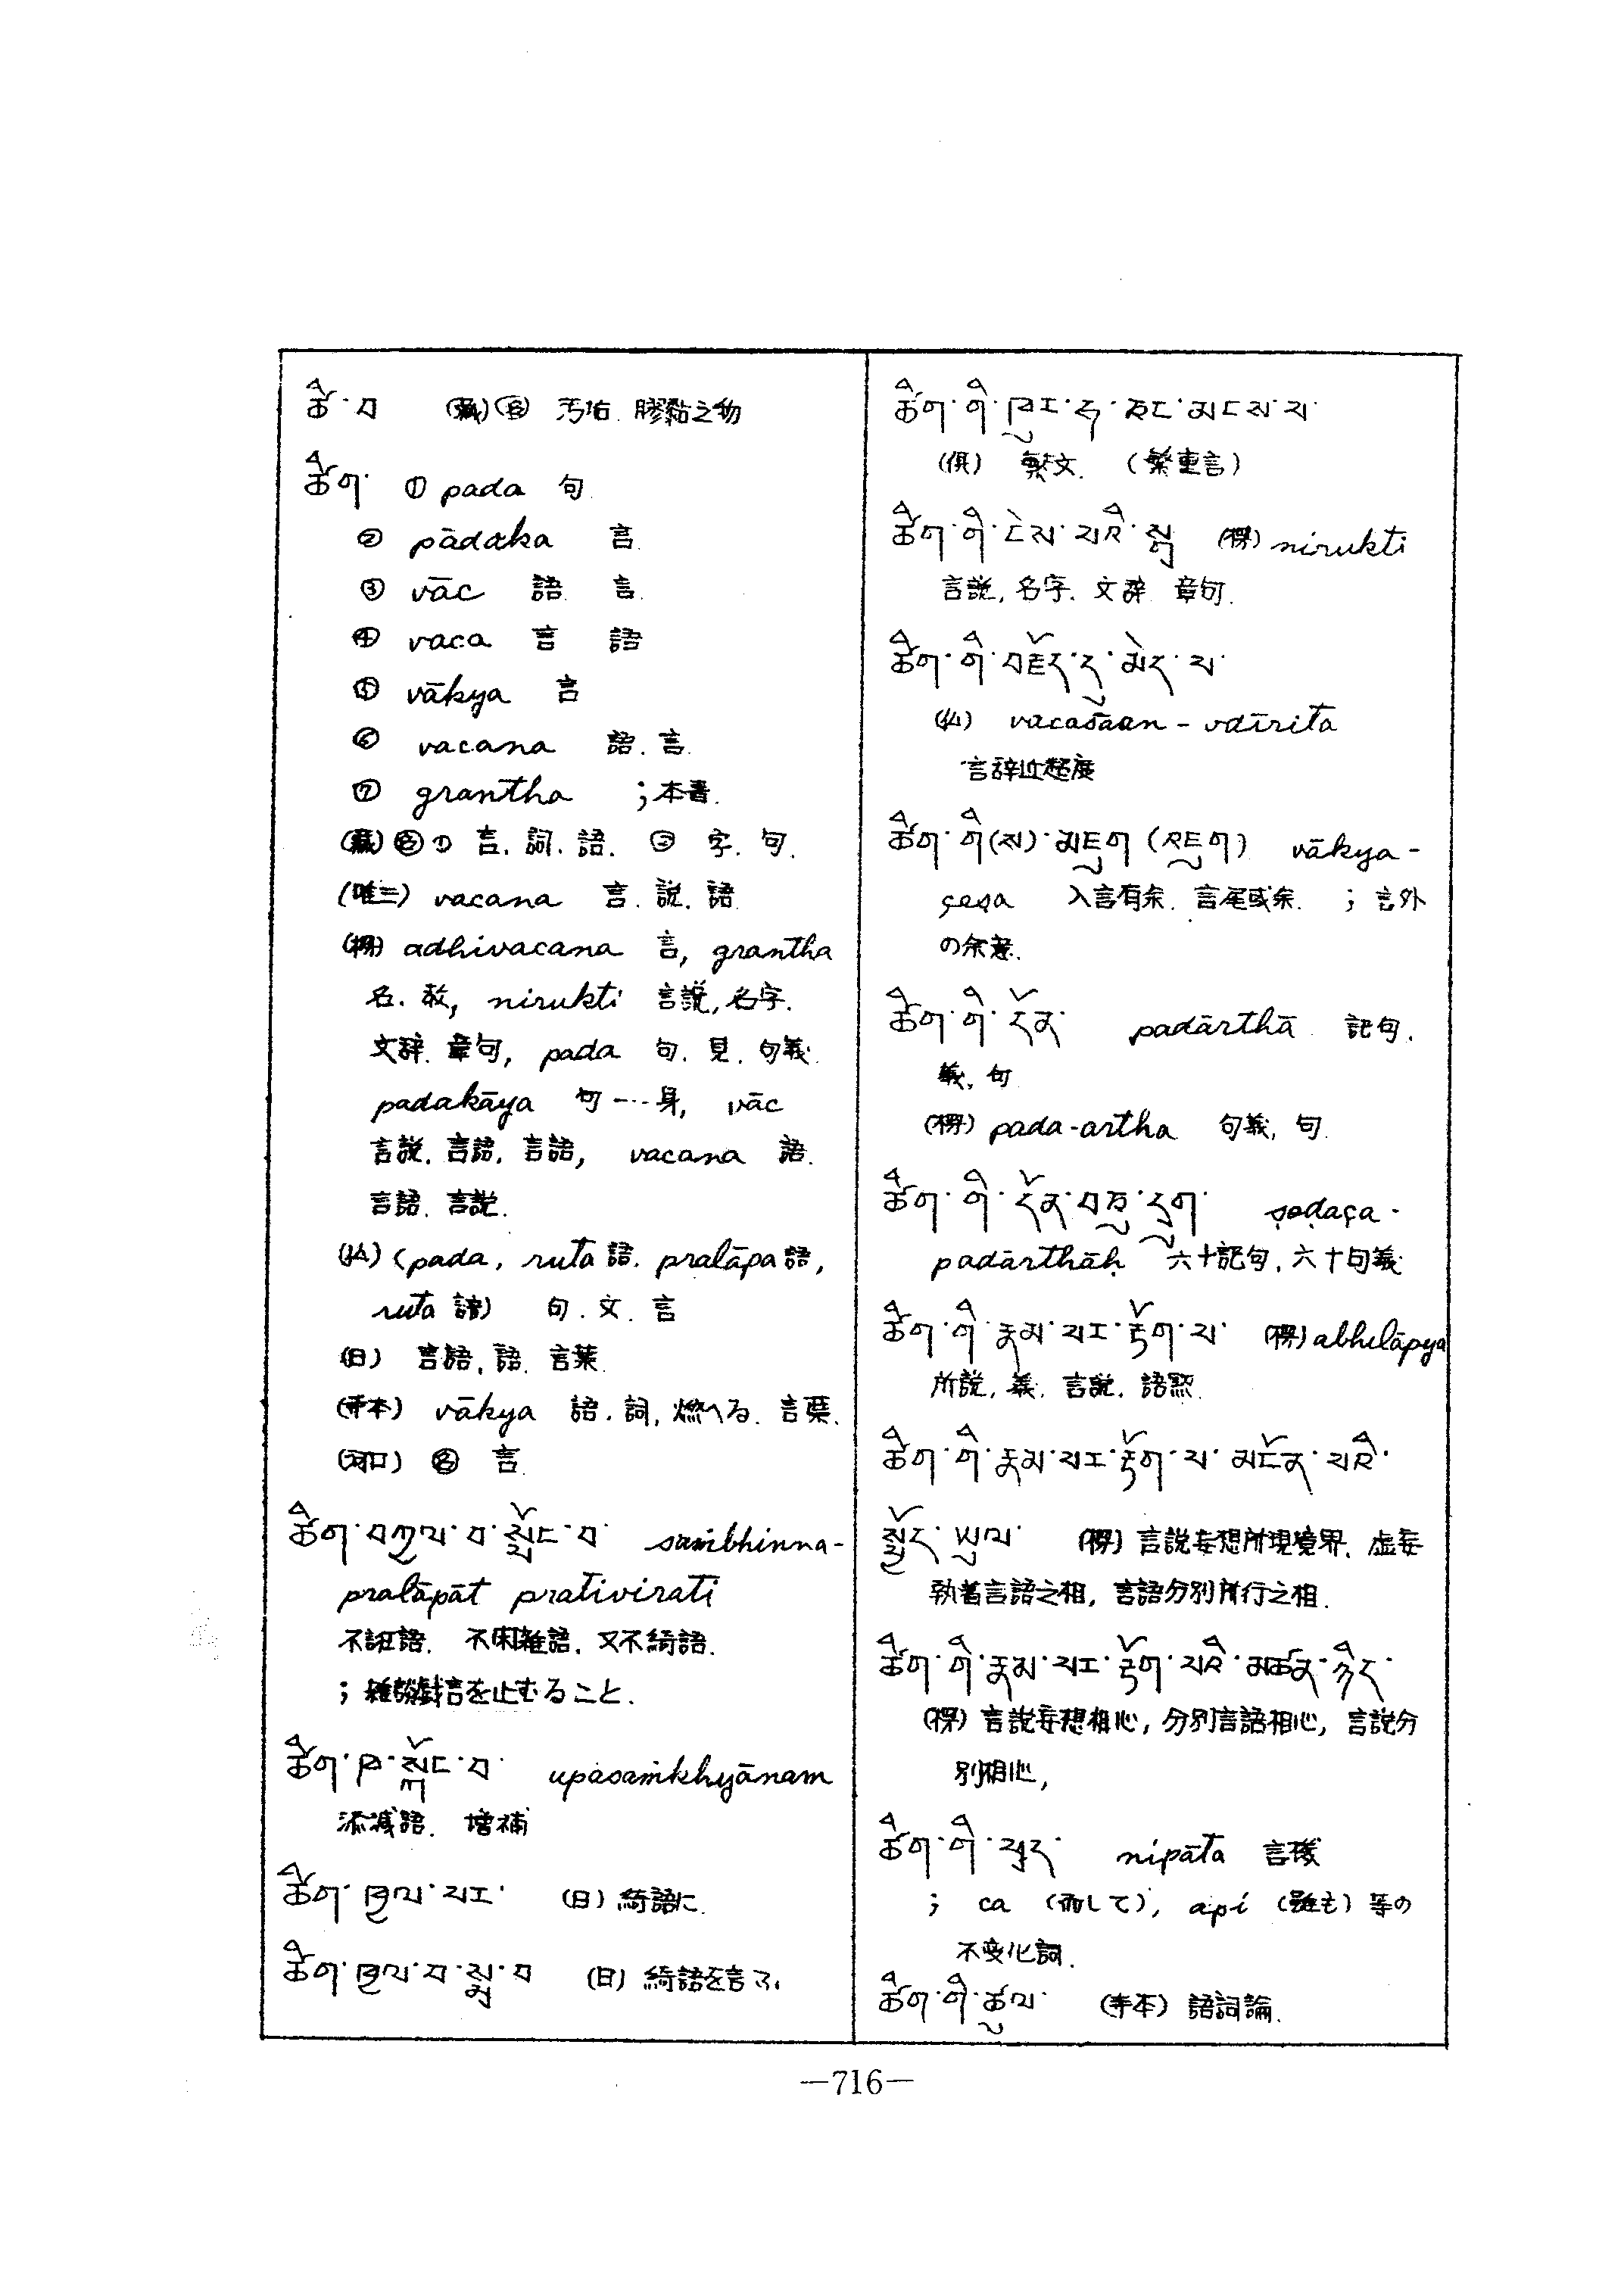 ཚི་བ (蔵)㊔ 汚垢. 膠黏之物
ཚིག་ ① pada 句
② pādaka 言.
③ vāc 語. 言.
④ vaca 言 語
⑤ vākya 言
⑥ vacana 語. 言.
⑦ grantha ;本書.
(蔵) ① 言. 詞. 語. ② 字. 句.
(唯三) vacana 言. 説. 語.
(楞) adhivacana 言, grantha
名. 教, nirukti 言説, 名字.
文辞. 章句, pada 句. 見. 句義.
padakāya 句…身, vāc
言説. 言語. 言語, vacana 語.
言語. 言説.
(仏) (pada, ruta 語. pralāpa 語,
ruta 諳) 句. 文. 言
(日) 言語, 語. 言葉.
(寺本) vākya 語. 詞, 燃へる. 言葉.
(河口) 言.
ཚིག་བཀྱལ་བ་སྤོང་བ་ saṁbhinna-
pralāpāt prativirati
不誑語. 不困雑語. 又不綺語.
; 雑穢戯言を止むること.
ཚིག་ཁ་སྐོང་བ་ upasaṁkhyānam
添減語. 増補
ཚིག་ཁྱལ་པར་ (日) 綺語に.
ཚིག་ཁྱལ་བ་སྨྲ་བ (日) 綺語を言ふ.
ཚིག་གི་ཁུར་ཏ་ཅང་མངས་པ་
(倶) 繁文. (繁重言)
ཚིག་གི་ངེས་པའི་སྒྲ (楞) nirukti
言説, 名字. 文辞. 章句.
ཚིག་གི་བརྗོད་དུ་མེད་པ་
(仏) vacasāan-udīrita
言辞迥超度
ཚིག་གི(ས)་མཇུག (འཇུག) vākya-
çeṣa 入言有余. 言尾或余. ; 言外
の余意.
ཚིག་གི་དོན་ padārthā 記句.
義, 句.
(楞) pada-artha 句義, 句.
ཚིག་གི་དོན་བཅུ་དྲུག་ ṣoḍaça-
padārthāḥ 六十記句, 六十句義
ཚིག་གི་རྣམ་པར་རྟོག་པ་ (楞) abhilāpya
所説, 義. 言説. 語黙.
ཚིག་གི་རྣམ་པར་རྟོག་པ་མངོན་པའི་
སྤྱོད་ཡུལ་ (楞) 言説妄想所現境界. 虚妄
執着言語之相, 言語分別所行之相.
ཚིག་གི་རྣམ་པར་རྟོག་པའི་མཚན་ཉིད་
(楞) 言説妄想相心, 分別言語相心, 言説分
別相心,
ཚིག་གི་ཕྲད་ nipāta 言殘
; ca (而して), api (雖も) 等の
不変化詞.
ཚིག་གི་ཚུལ་ (寺本) 語詞論.
—716—